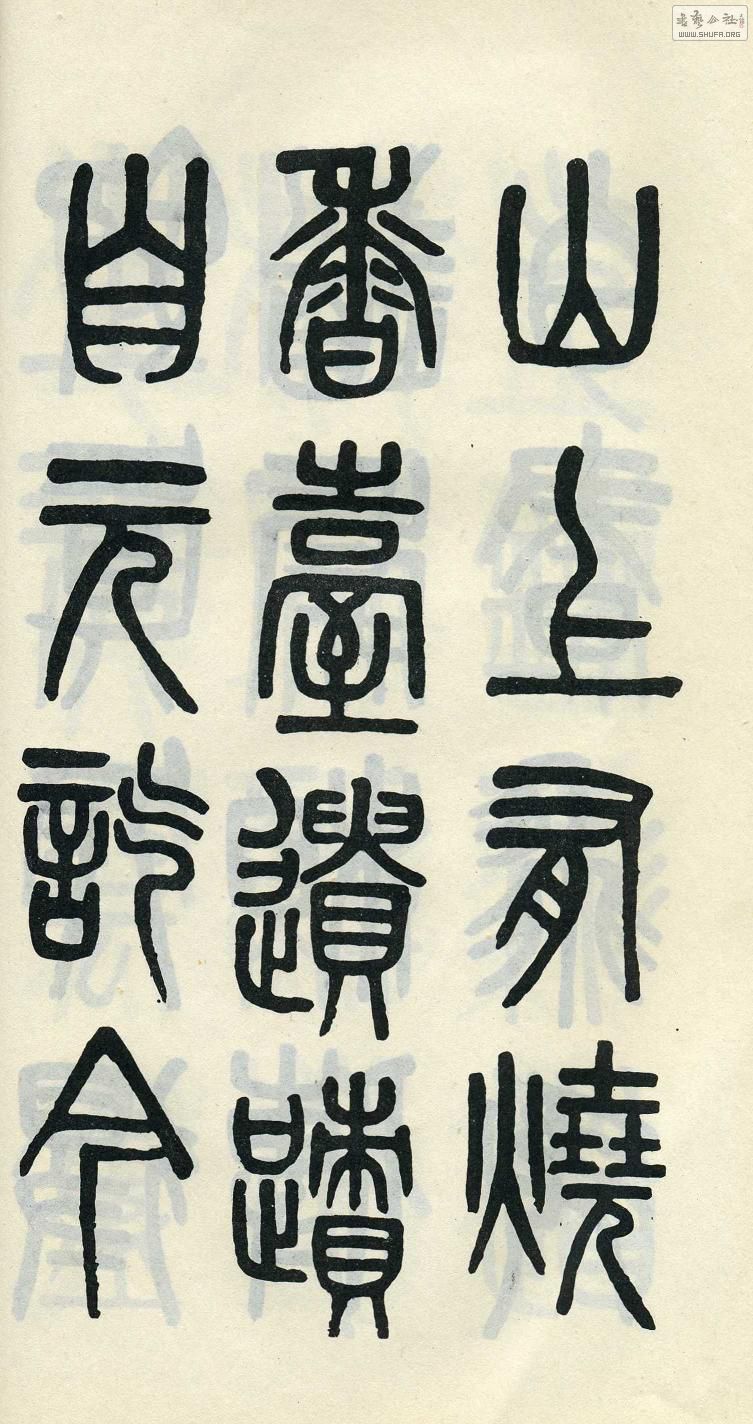 山上有燒
香臺遺蹟
自元訖今
書藝公社
WWW.SHUFA.ORG